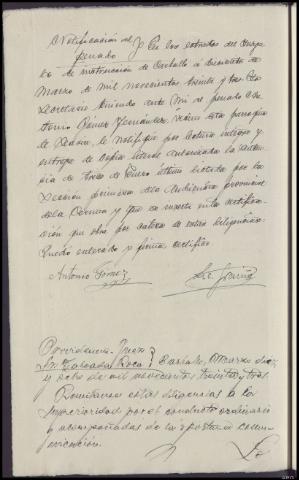 Notificación al } En los estrados del Juzga
penado
do de instrucción de Carballo a dieciocho de
Marzo de mil novecientos treinta y tres. El
Secretario teniendo ante mí al penado An
tonio Gómez Fernández, vecino de la parroquia
de, le notifiqué por lectura íntegra y
entrega de copia literal autorizada la senten
cia de trece de Enero último dictada por la
Sección primera de la Audiencia provincial
de la Coruña y que se inserta en la certifica
ción que obra por cabeza de estas diligencias.
Quedó enterado y firma, certifico.
Antonio Gomez
Providencia. Juez }
Sr. Taboada Roca } Carballo, Marzo diez
y ocho de mil novecientos treinta y tres.
Remítanse estas diligencias a la
Superioridad por el conducto ordinario
y acompañadas de la oportuna comu
nicación.